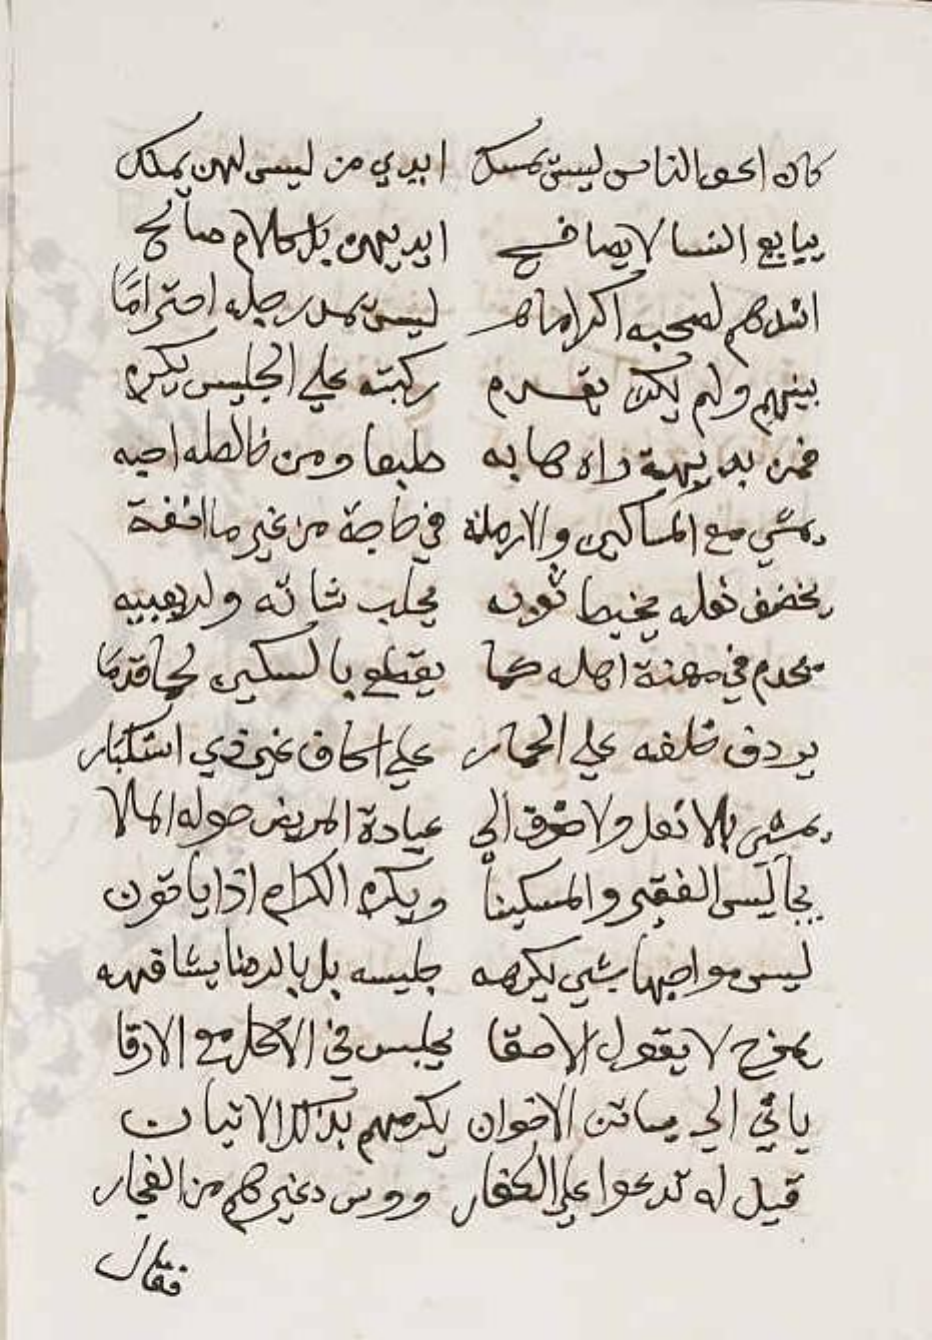 كان اعف الناس ليس يمسك ايدي من ليس لهن يملك
يبايع النسا لا يصافح ايديهن بل كلام صالح
اشدهم لصحبه اكراما ليس يمد رجله احتراما
بينهم ولم يكن يقدم ركبته علي الجليس يكرم
فمن بديهة راه هابه طبعا ومن خالطه احبه
يمشي مع المساكين والارملة في حاجة من غير ما انفة
يخصف نعله يخيط ثوبه يحلب شاته ولن يعيبه
يخدم في مهنة اهله كما يقطع بالسكين لحما قدما
يردف خلفه علي الحمار علي اكاف غير ذي استكبار
يمشي بلا نعل ولا خف الي عيادة المريض حوله الملا
يجالس الفقير والمسكينا ويكرم الكرام اذا ياتون
ليس مواجها بشي يكرهه جليسه بل بالرضا يشافهه
يمزح لا يقول الا حقا يجلس في الاكل مع الارقا
ياتي الي بساتن الاخوان يكرمهم بذلك الاتيان
قيل له تدعوا علي الكفار دوس وغيرهم من الفجار
فقال